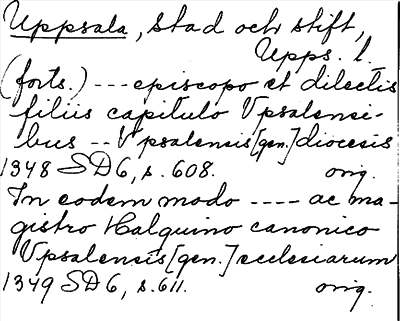 Uppsala, stad och stift,
Upps. l.
(forts.) --- episcopo et dilectis
filiis capitulo Vpsalensi-
bus -- Vpsalensis [gen.] diocesis
1348 SD6, s. 608. orig.
In eodem modo ---- ac ma-
gistro Halquino canonico
Vpsalensis [gen.] ecclesiarum
1349 SD6, s. 611. orig.